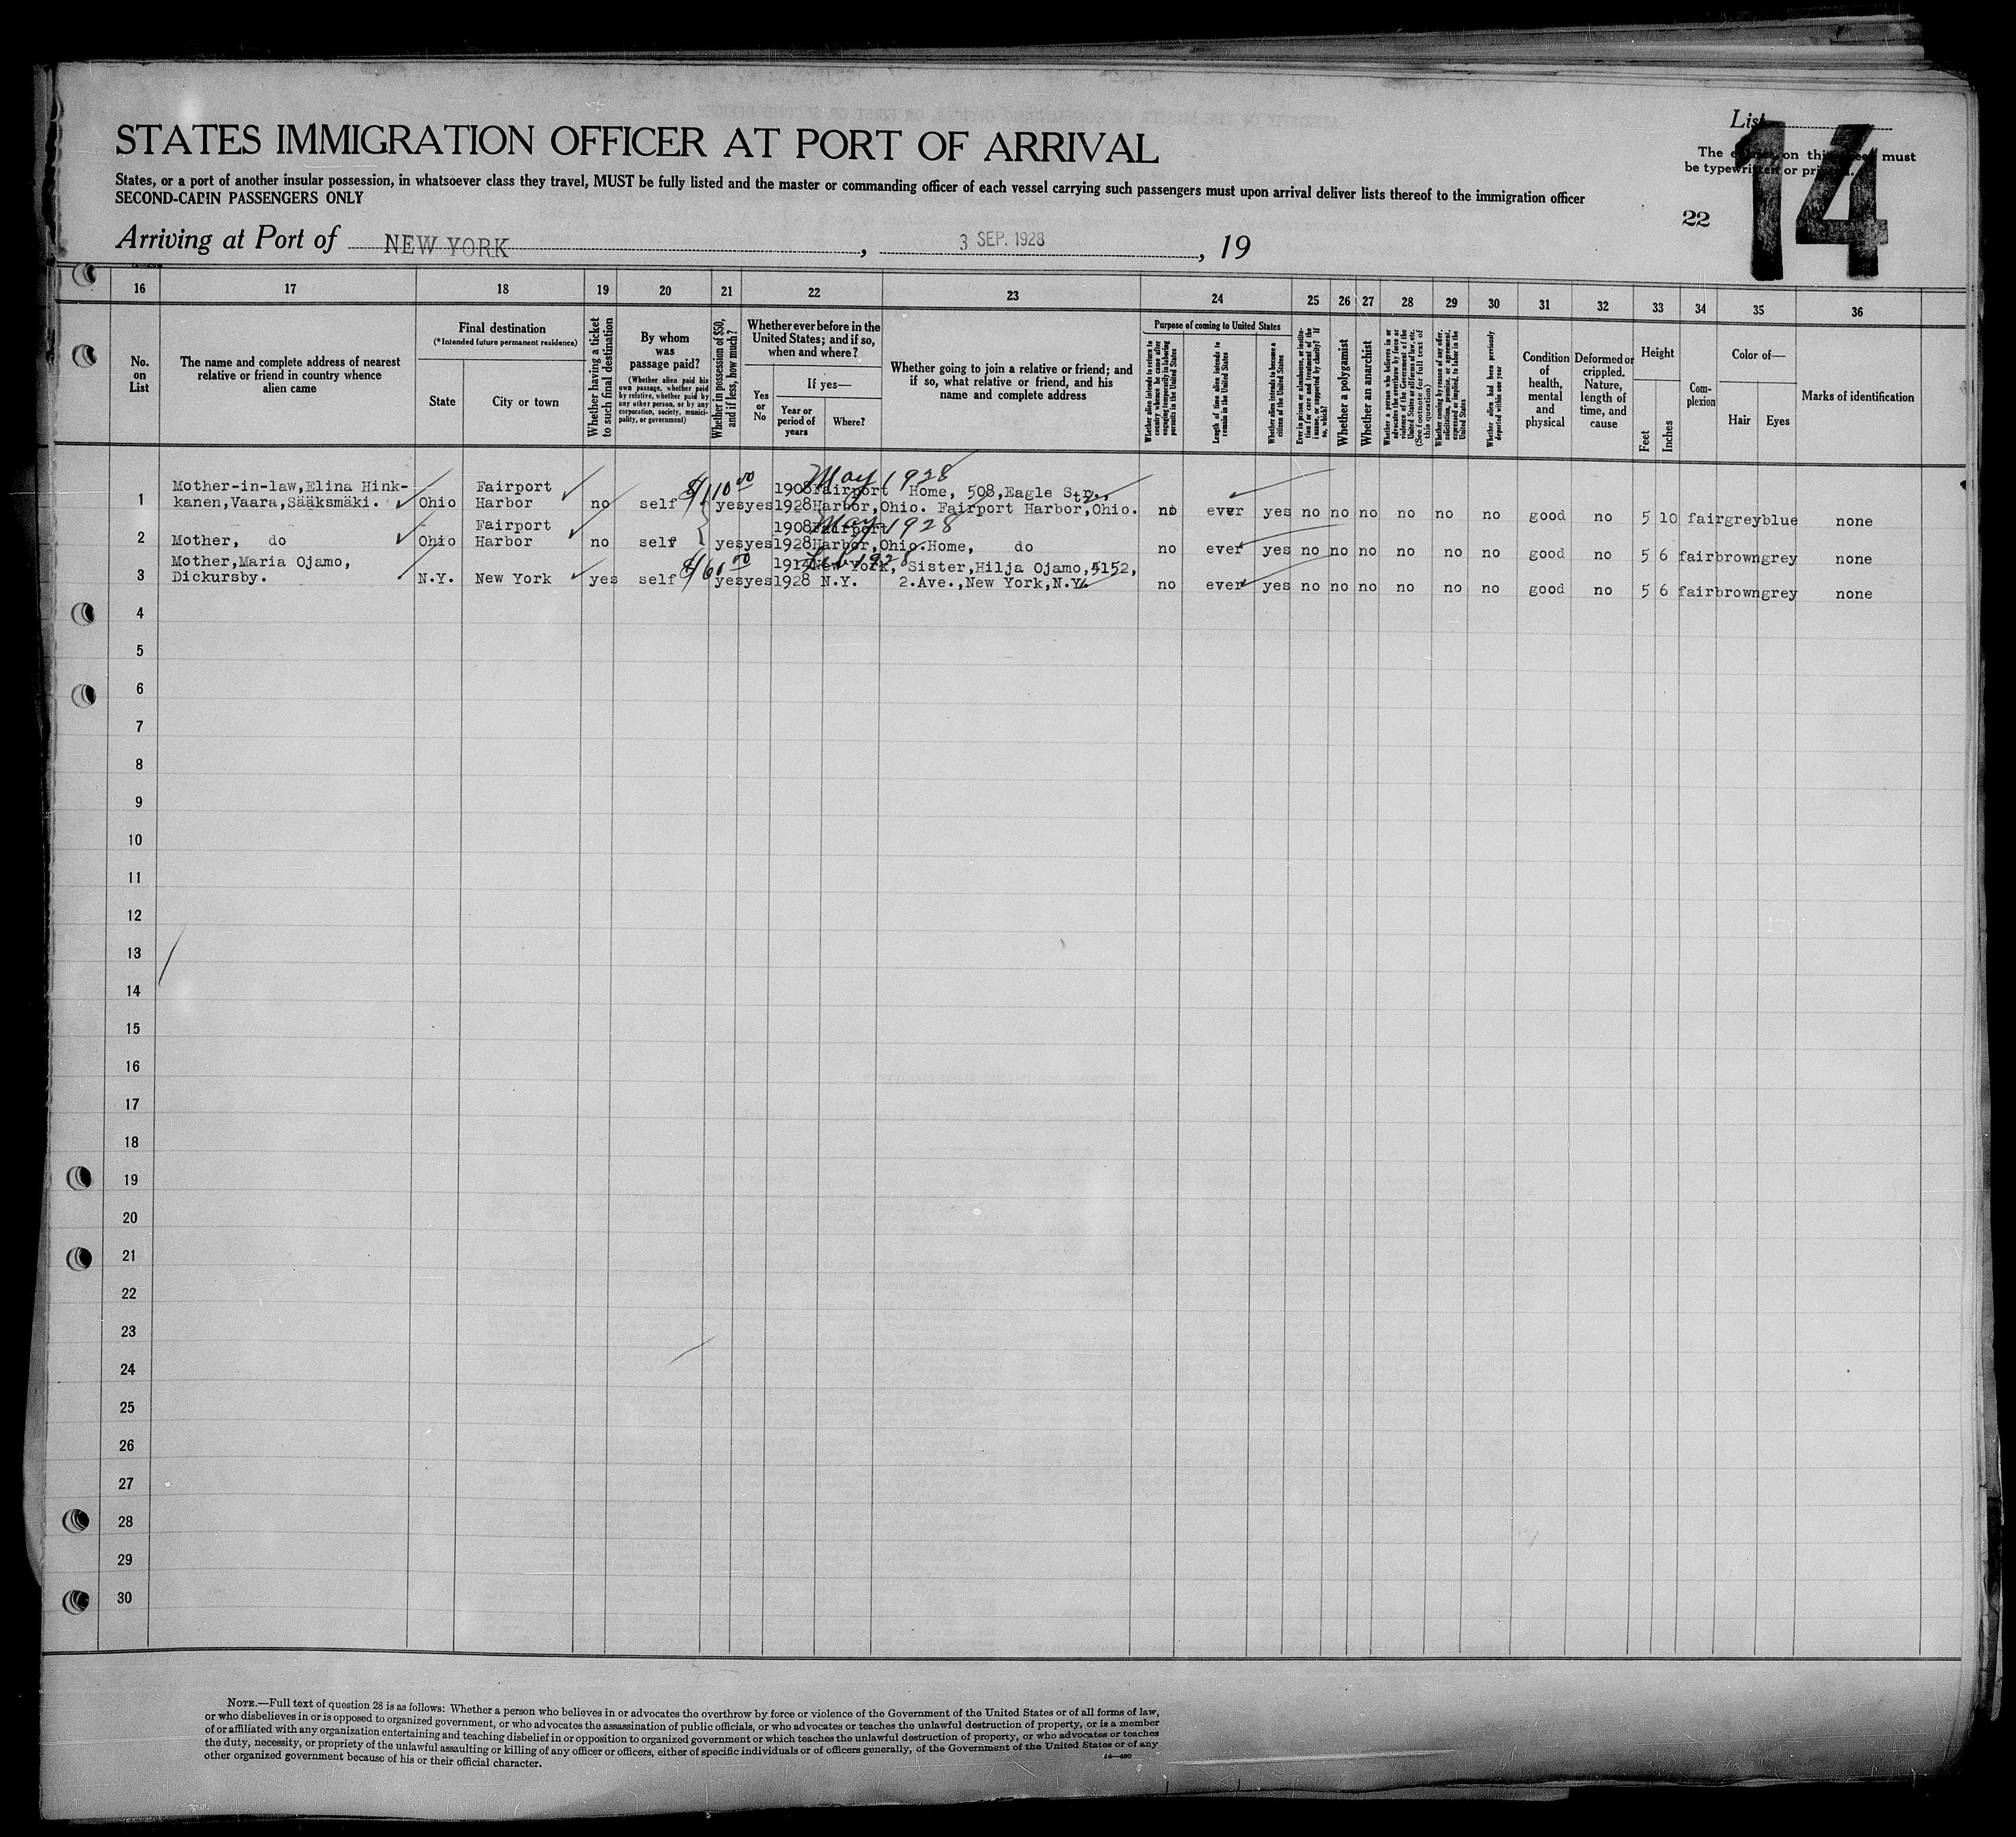 STATES IMMIGRATION OFFICER AT PORT OF ARRIVAL
List
The on this must
be typewritten or
14
States, or a port of another insular possession, in whatsoever class they travel, MUST be fully listed and the master or commanding officer of each vessel carrying such passengers must upon arrival deliver lists thereof to the immigration officer
SECOND-CABIN PASSENGERS ONLY
22
Arriving at Port of NEW YORK, 3 SEP. 1928, 19
16 17 18 19 20 21 22 23 24 25 26 27 28 29 30 31 32 33 34 35 36
No. on List
The name and complete address of nearest relative or friend in country whence alien came
Final destination
(*Intended future permanent residence)
State
City or town
Whether having a ticket to such final destination
By whom was passage paid?
(Whether alien paid his own passage, whether paid by relative, whether paid by any other person, or by any corporation, society, municipality, or government)
Whether in possession of $50, and if less, how much?
Whether ever before in the United States; and if so, when and where?
Yes or No
If yes—
Year or period of years
Where?
Whether going to join a relative or friend; and if so, what relative or friend, and his name and complete address
Purpose of coming to United States
Whether alien intends to return to country whence he came after engaging temporarily in laboring pursuits in the United States
Length of time alien intends to remain in the United States
Whether alien intends to become a citizen of the United States
Ever in prison or almshouse, or institution for care and treatment of the insane, or supported by charity? If so, which?
Whether a polygamist
Whether an anarchist
Whether a person who believes in or advocates the overthrow by force or violence of the Government of the United States or all forms of law, etc. (See footnote for full text of this question)
Whether coming by reason of any offer, solicitation, promise, or agreement, expressed or implied, to labor in the United States
Whether alien had been previously deported within one year
Condition of health, mental and physical
Deformed or crippled. Nature, length of time, and cause
Height
Feet
Inches
Complexion
Color of—
Hair
Eyes
Marks of identification
$110 00 May 1928
Mother-in-law,Elina Hink- Fairport 1908 Fairport Home, 508,Eagle Str.,
1 kanen,Vaara,Sääksmäki. Ohio Harbor no self yes yes 1928 Harbor,Ohio. Fairport Harbor,Ohio. no ever yes no no no no no no good no 5 10 fair grey blue none
May 1928
Fairport 1908 Fairport
2 Mother, do Ohio Harbor no self yes yes 1928 Harbor,Ohio. Home, do no ever yes no no no no no no good no 5 6 fair brown grey none
$60 00 1928
Mother,Maria Ojamo, 1914 New York, Sister,Hilja Ojamo,5152,
3 Dickursby. N.Y. New York yes self yes yes 1928 N.Y. 2.Ave.,New York,N.Y. no ever yes no no no no no no good no 5 6 fair brown grey none
4
5
6
7
8
9
10
11
12
13
14
15
16
17
18
19
20
21
22
23
24
25
26
27
28
29
30
NOTE.—Full text of question 28 is as follows: Whether a person who believes in or advocates the overthrow by force or violence of the Government of the United States or of all forms of law,
or who disbelieves in or is opposed to organized government, or who advocates the assassination of public officials, or who advocates or teaches the unlawful destruction of property, or is a member
of or affiliated with any organization entertaining and teaching disbelief in or opposition to organized government or which teaches the unlawful destruction of property, or who advocates or teaches
the duty, necessity, or propriety of the unlawful assaulting or killing of any officer or officers, either of specific individuals or of officers generally, of the Government of the United States or of any
other organized government because of his or their official character.
14—430